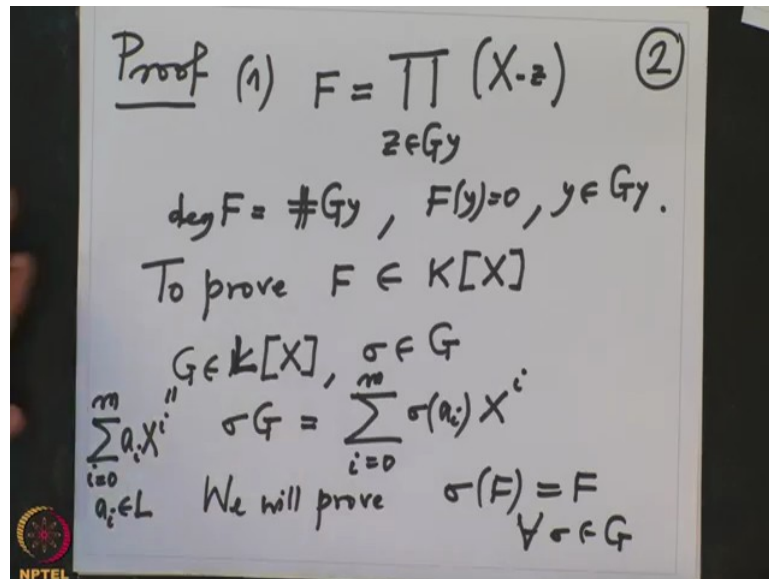 Proof (1) F = ∏ (X-z) ②
z∈Gy
deg F = #Gy, F(y)=0, y∈Gy.
To prove F ∈ K[X]
G∈L[X], σ∈G
m "
∑ aᵢXⁱ σG = ∑ σ(aᵢ) Xⁱ
i=0 i=0
aᵢ∈L We will prove σ(F) = F
∀ σ∈G
NPTEL